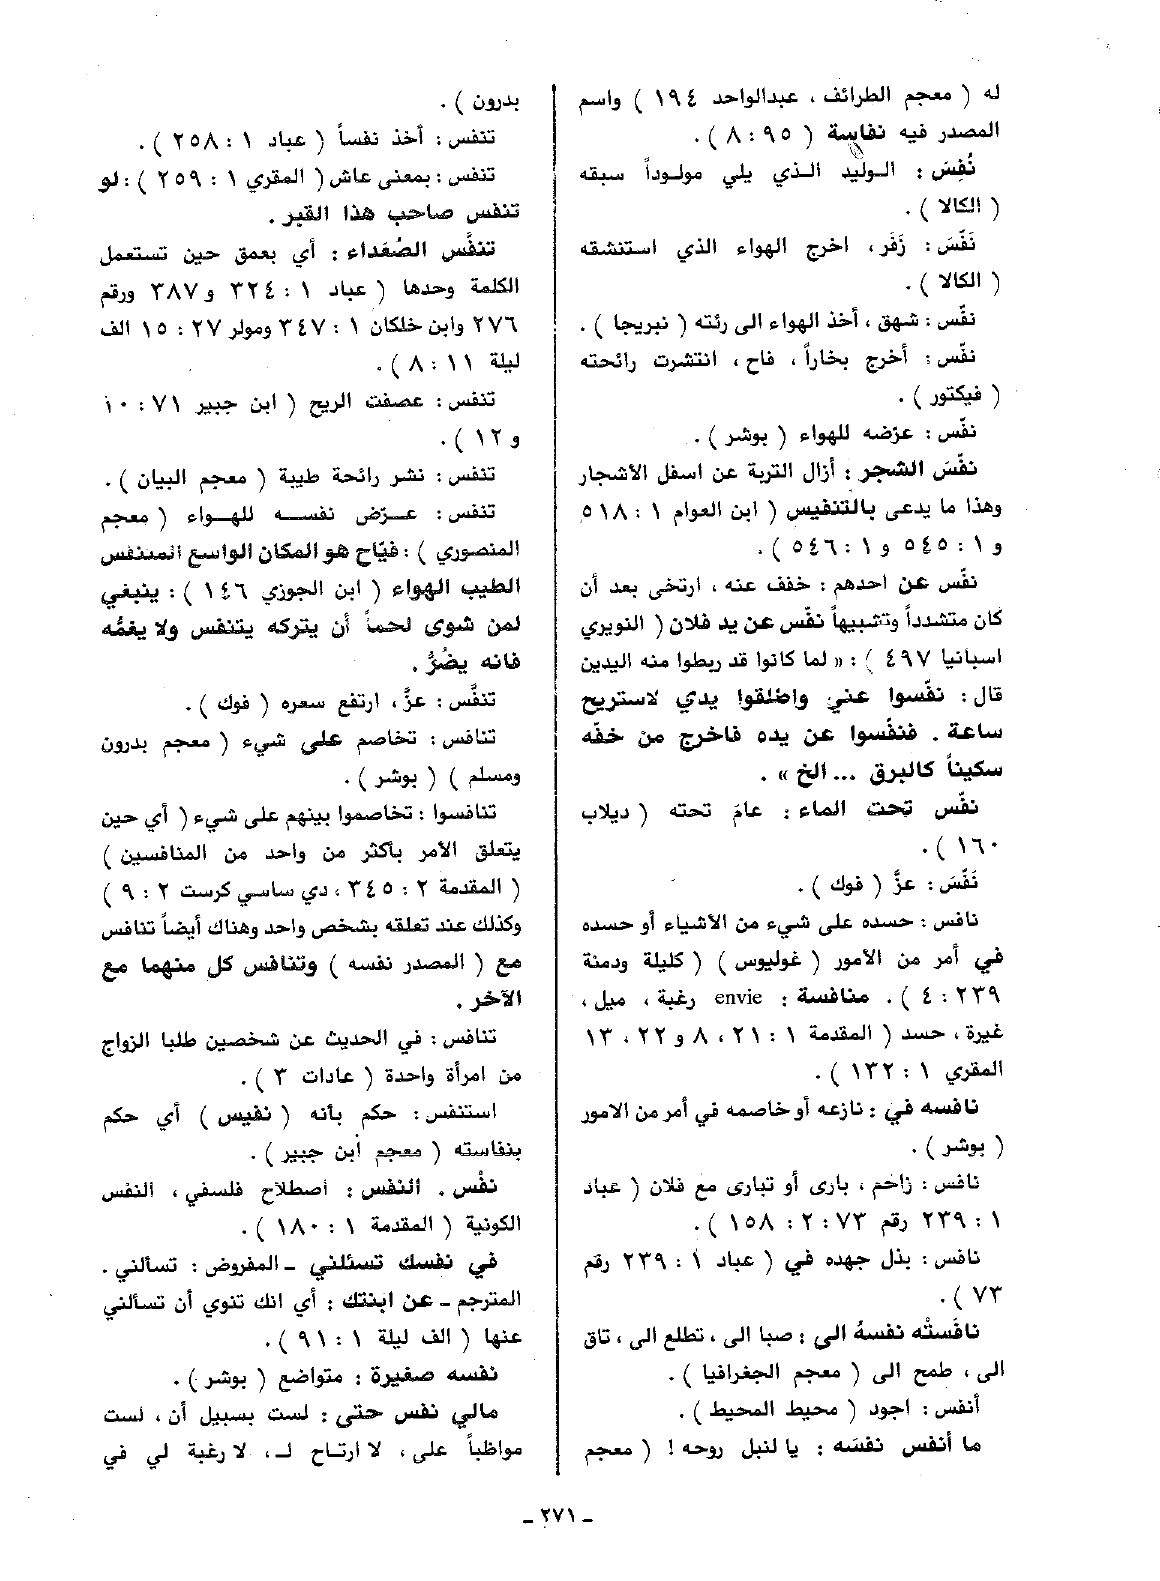 له ( معجم الطرائف ، عبدالواحد ١٩٤ ) واسم
المصدر فيه نفاسة ( ٩٥ : ٨ ) .
نُفِسَ : الوليد الذي يلي مولوداً سبقه
( الكالا ) .
نَفَّسَ : زَفَر ، اخرج الهواء الذي استنشقه
( الكالا ) .
نفّس : شهق ، أخذ الهواء الى رئته ( نبريجا ) .
نفّس : أخرج بخاراً ، فاح ، انتشرت رائحته
( فيكتور ) .
نفّس : عرّضه للهواء ( بوشر ) .
نفّسَ الشجر : أزال التربة عن اسفل الأشجار
وهذا ما يدعى بالتنفيس ( ابن العوام ١ : ٥١٨
و ١ : ٥٤٥ و ١ : ٥٤٦ ) .
نفّس عن احدهم : خفف عنه ، ارتخى بعد أن
كان متشدداً وتشبيهاً نفّس عن يد فلان ( النويري
اسبانيا ٤٩٧ ) : « لما كانوا قد ربطوا منه اليدين
قال : نفّسوا عني واطلقوا يدي لاستريح
ساعة . فنفّسوا عن يده فاخرج من خفّه
سكيناً كالبرق ... الخ » .
نفّس تحت الماء : عامَ تحته ( ديلاب
١٦٠ ) .
نَفَّسَ : عزَّ ( فوك ) .
نافس : حسده على شيء من الأشياء أو حسده
في أمر من الأمور ( غوليوس ) ( كليلة ودمنة
٢٣٩ : ٤ ) . منافسة : envie رغبة ، ميل ،
غيرة ، حسد ( المقدمة ١ : ٢١ ، ٨ و ٢٢ ، ١٣
المقري ١ : ١٣٢ ) .
نافسه في : نازعه أو خاصمه في أمر من الامور
( بوشر ) .
نافس : زاحم ، بارى أو تبارى مع فلان ( عباد
١ : ٢٣٩ رقم ٧٣ : ٢ : ١٥٨ ) .
نافس : بذل جهده في ( عباد ١ : ٢٣٩ رقم
٧٣ ) .
نافَستْه نفسهُ الى : صبا الى ، تطلع الى ، تاق
الى ، طمح الى ( معجم الجغرافيا ) .
أنفس : اجود ( محيط المحيط ) .
ما أنفس نفسَه : يا لنبل روحه ! ( معجم
بدرون ) .
تنفس : أخذ نفساً ( عباد ١ : ٢٥٨ ) .
تنفس : بمعنى عاش ( المقري ١ : ٢٥٩ ) : لو
تنفس صاحب هذا القبر .
تنفَّس الصُعَداء : أي بعمق حين تستعمل
الكلمة وحدها ( عباد ١ : ٣٢٤ و ٣٨٧ ورقم
٢٧٦ وابن خلكان ١ : ٣٤٧ ومولر ٢٧ : ١٥ الف
ليلة ١١ : ٨ ) .
تنفس : عصفت الريح ( ابن جبير ٧١ : ١٠
و ١٢ ) .
تنفس : نشر رائحة طيبة ( معجم البيان ) .
تنفس : عرّض نفسه للهواء ( معجم
المنصوري ) : فيّاح هو المكان الواسع المتنفس
الطيب الهواء ( ابن الجوزي ١٤٦ ) : ينبغي
لمن شوى لحماً أن يتركه يتنفس ولا يغمُّه
فانه يضُرُّ .
تنفَّس : عزَّ ، ارتفع سعره ( فوك ) .
تنافس : تخاصم على شيء ( معجم بدرون
ومسلم ) ( بوشر ) .
تنافسوا : تخاصموا بينهم على شيء ( أي حين
يتعلق الأمر بأكثر من واحد من المنافسين )
( المقدمة ٢ : ٣٤٥ ، دي ساسي كرست ٢ : ٩ )
وكذلك عند تعلقه بشخص واحد وهناك أيضاً تنافس
مع ( المصدر نفسه ) وتنافس كل منهما مع
الآخر .
تنافس : في الحديث عن شخصين طلبا الزواج
من امرأة واحدة ( عادات ٣ ) .
استنفس : حكم بأنه ( نفيس ) أي حكم
بنفاسته ( معجم ابن جبير ) .
نفْس . النفس : اصطلاح فلسفي ، النفس
الكونية ( المقدمة ١ : ١٨٠ ) .
في نفسك تسئلني ـ المفروض : تسألني .
المترجم ـ عن ابنتك : أي انك تنوي أن تسألني
عنها ( الف ليلة ١ : ٩١ ) .
نفسه صغيرة : متواضع ( بوشر ) .
مالي نفس حتى : لست بسبيل أن ، لست
مواظباً على ، لا ارتاح لـ ، لا رغبة لي في
ـ ٢٧١ ـ